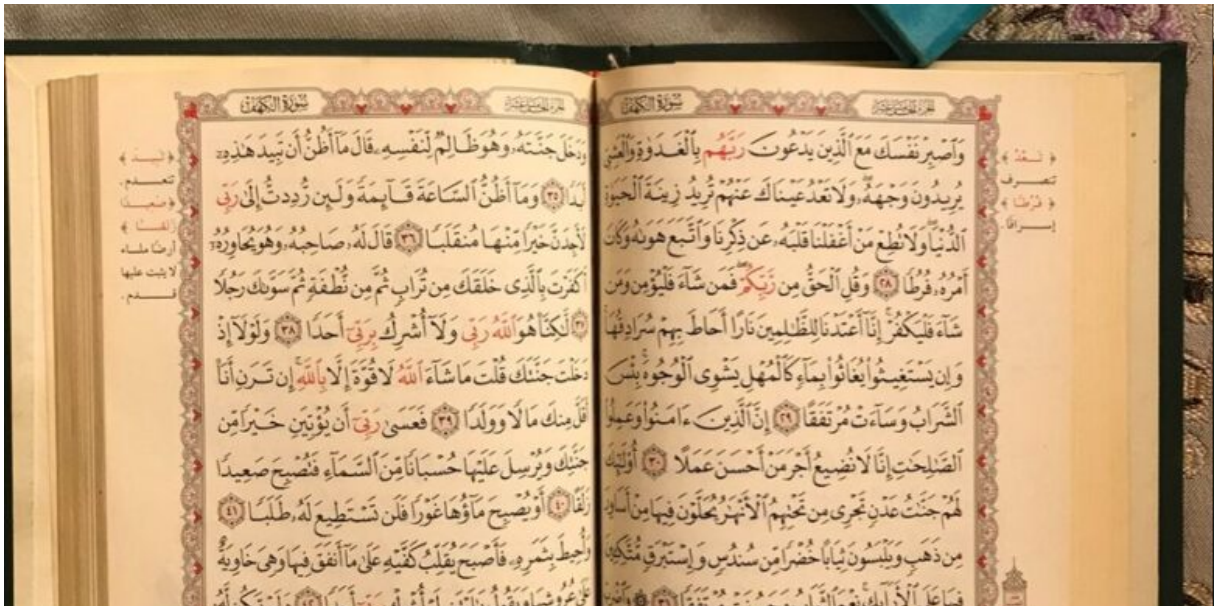 الجزء الخامس عشر
سُورَةُ الكَهْفِ
وَٱصْبِرْ نَفْسَكَ مَعَ ٱلَّذِينَ يَدْعُونَ رَبَّهُم بِٱلْغَدَوٰةِ وَٱلْعَشِىِّ
يُرِيدُونَ وَجْهَهُۥ ۖ وَلَا تَعْدُ عَيْنَاكَ عَنْهُمْ تُرِيدُ زِينَةَ ٱلْحَيَوٰةِ
ٱلدُّنْيَا ۖ وَلَا تُطِعْ مَنْ أَغْفَلْنَا قَلْبَهُۥ عَن ذِكْرِنَا وَٱتَّبَعَ هَوَىٰهُ وَكَانَ
أَمْرُهُۥ فُرُطًا ٢٨ وَقُلِ ٱلْحَقُّ مِن رَّبِّكُمْ ۖ فَمَن شَآءَ فَلْيُؤْمِن وَمَن
شَآءَ فَلْيَكْفُرْ ۚ إِنَّآ أَعْتَدْنَا لِلظَّـٰلِمِينَ نَارًا أَحَاطَ بِهِمْ سُرَادِقُهَا ۚ
وَإِن يَسْتَغِيثُوا۟ يُغَاثُوا۟ بِمَآءٍ كَٱلْمُهْلِ يَشْوِى ٱلْوُجُوهَ ۚ بِئْسَ
ٱلشَّرَابُ وَسَآءَتْ مُرْتَفَقًا ٢٩ إِنَّ ٱلَّذِينَ ءَامَنُوا۟ وَعَمِلُوا۟
ٱلصَّـٰلِحَـٰتِ إِنَّا لَا نُضِيعُ أَجْرَ مَنْ أَحْسَنَ عَمَلًا ٣٠ أُو۟لَـٰٓئِكَ
لَهُمْ جَنَّـٰتُ عَدْنٍ تَجْرِى مِن تَحْتِهِمُ ٱلْأَنْهَـٰرُ يُحَلَّوْنَ فِيهَا مِنْ أَسَاوِرَ
مِن ذَهَبٍ وَيَلْبَسُونَ ثِيَابًا خُضْرًا مِّن سُندُسٍ وَإِسْتَبْرَقٍ مُّتَّكِـِٔينَ
فِيهَا عَلَى ٱلْأَرَآئِكِ ۚ نِعْمَ ٱلثَّوَابُ وَحَسُنَتْ مُرْتَفَقًا ٣١ ۞ وَٱضْرِبْ
﴿ تَعْدُ ﴾
تنصرف
﴿ فُرُطًا ﴾
إسرافًا.
الجزء الخامس عشر
سُورَةُ الكَهْفِ
وَدَخَلَ جَنَّتَهُۥ وَهُوَ ظَالِمٌ لِّنَفْسِهِۦ قَالَ مَآ أَظُنُّ أَن تَبِيدَ هَـٰذِهِۦٓ
أَبَدًا ٣٥ وَمَآ أَظُنُّ ٱلسَّاعَةَ قَآئِمَةً وَلَئِن رُّدِدتُّ إِلَىٰ رَبِّى
لَأَجِدَنَّ خَيْرًا مِّنْهَا مُنقَلَبًا ٣٦ قَالَ لَهُۥ صَاحِبُهُۥ وَهُوَ يُحَاوِرُهُۥٓ
أَكَفَرْتَ بِٱلَّذِى خَلَقَكَ مِن تُرَابٍ ثُمَّ مِن نُّطْفَةٍ ثُمَّ سَوَّىٰكَ رَجُلًا
٣٧ لَّـٰكِنَّا۠ هُوَ ٱللَّهُ رَبِّى وَلَآ أُشْرِكُ بِرَبِّىٓ أَحَدًا ٣٨ وَلَوْلَآ إِذْ
دَخَلْتَ جَنَّتَكَ قُلْتَ مَا شَآءَ ٱللَّهُ لَا قُوَّةَ إِلَّا بِٱللَّهِ ۚ إِن تَرَنِ أَنَا۠
أَقَلَّ مِنكَ مَالًا وَوَلَدًا ٣٩ فَعَسَىٰ رَبِّىٓ أَن يُؤْتِيَنِ خَيْرًا مِّن
جَنَّتِكَ وَيُرْسِلَ عَلَيْهَا حُسْبَانًا مِّنَ ٱلسَّمَآءِ فَتُصْبِحَ صَعِيدًا
زَلَقًا ٤٠ أَوْ يُصْبِحَ مَآؤُهَا غَوْرًا فَلَن تَسْتَطِيعَ لَهُۥ طَلَبًا ٤١
وَأُحِيطَ بِثَمَرِهِۦ فَأَصْبَحَ يُقَلِّبُ كَفَّيْهِ عَلَىٰ مَآ أَنفَقَ فِيهَا وَهِىَ خَاوِيَةٌ
عَلَىٰ عُرُوشِهَا وَيَقُولُ يَـٰلَيْتَنِى لَمْ أُشْرِكْ بِرَبِّىٓ أَحَدًا ٤٢ وَلَمْ تَكُن لَّهُۥ
﴿ تَبِيدَ ﴾
تنعدم.
﴿ صَعِيدًا
زَلَقًا ﴾
أرضًا ملساء
لا يثبت عليها
قدم.